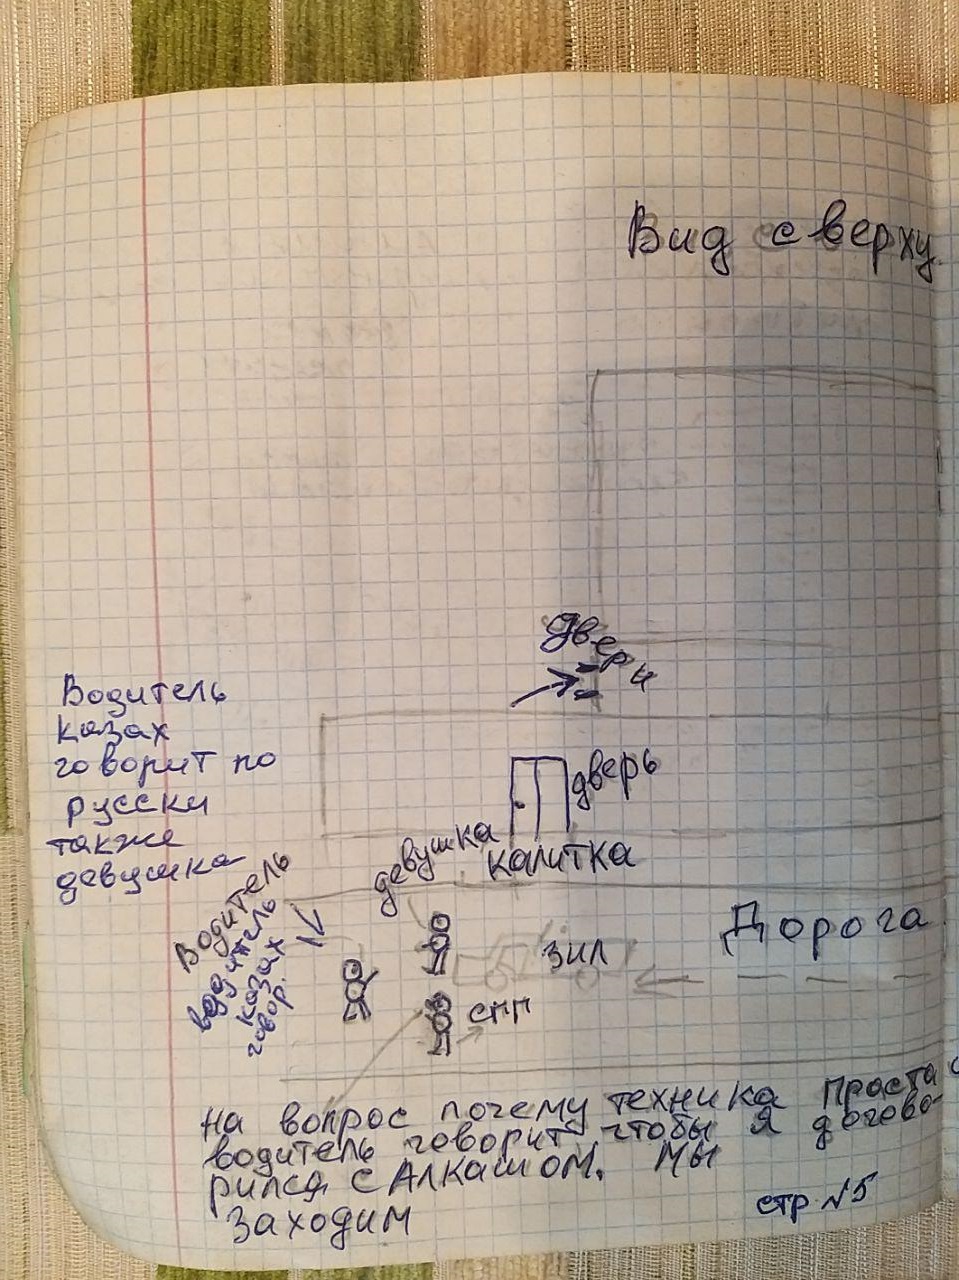 Вид с верху.
двери
Водитель
казах
говорит по
русски
также
девушка
дверь
калитка
девушка
Водитель
водитель
казах
говор.
Дорога
ЗИЛ
спп
на вопрос почему техника проста
водитель говорит чтобы я догово-
рился с Алкашом. мы
заходим
стр №5